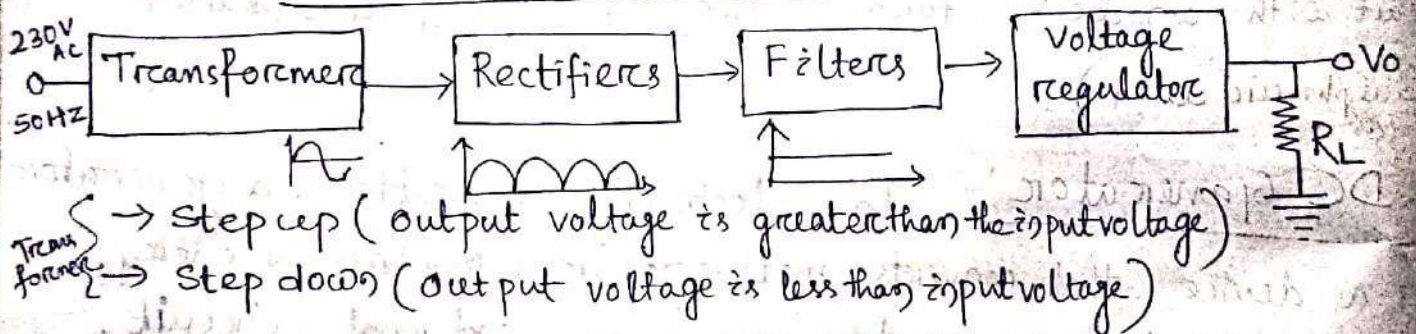 230V AC
50HZ
Transformer
Rectifiers
Filters
Voltage
regulator
Vo
RL
Transformer
→ Step up (output voltage is greater than the input voltage)
→ Step down (output voltage is less than input voltage)